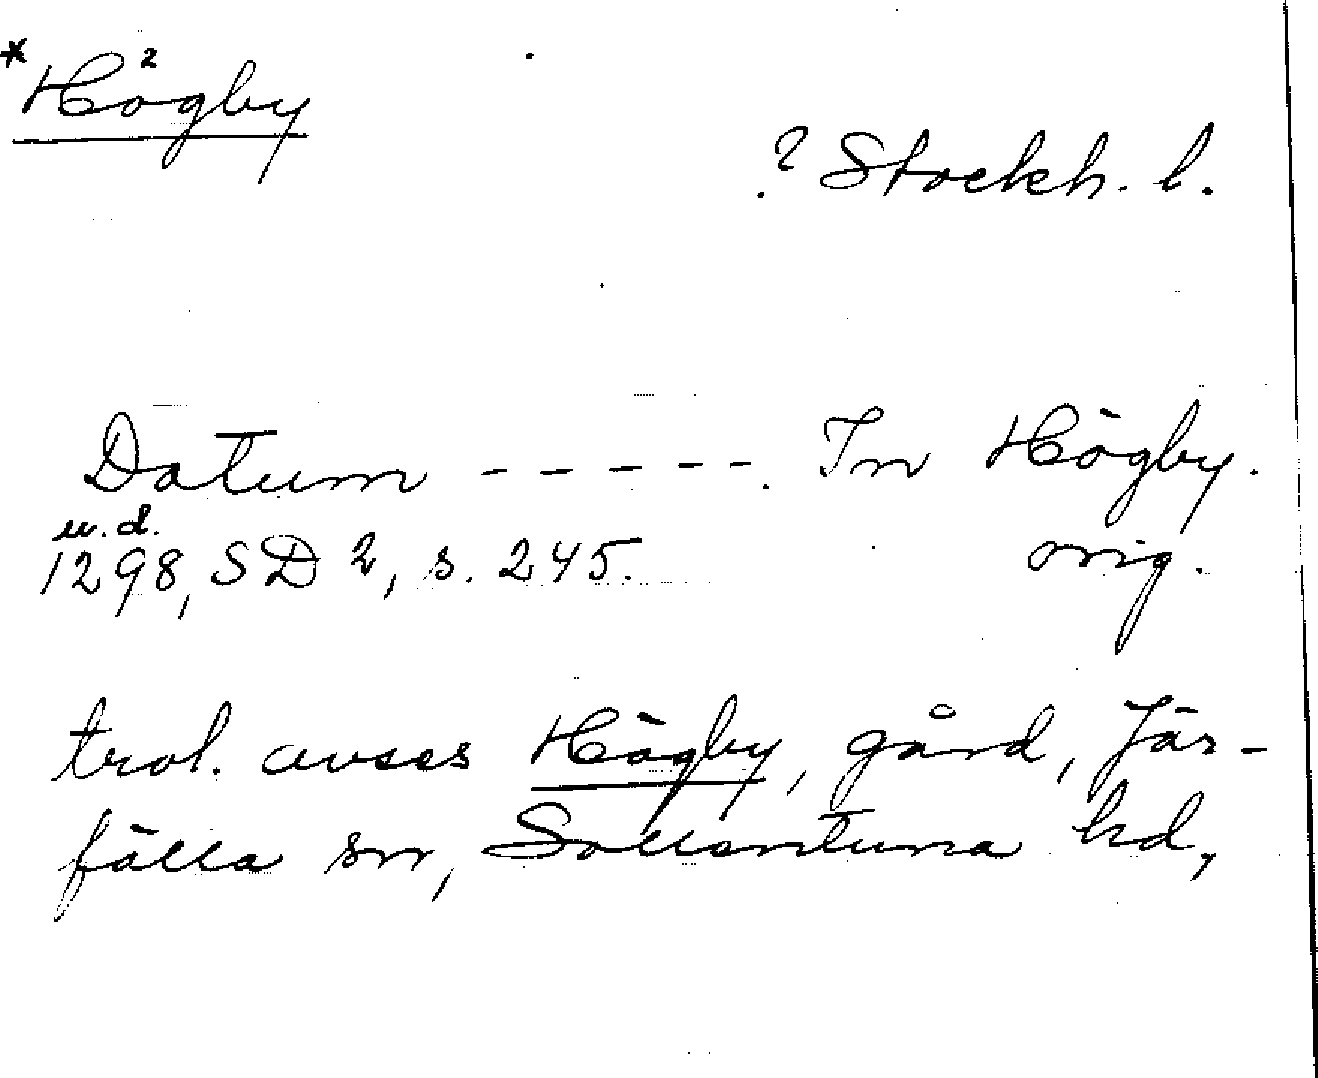 * Högby
? Stockh. l.
Datum - - - - -. In Högby.
u.d.
1298, SD 2, s. 245. orig.
trol. avses Högby, gård, Jär-
fälla sn, Sollentuna hd,